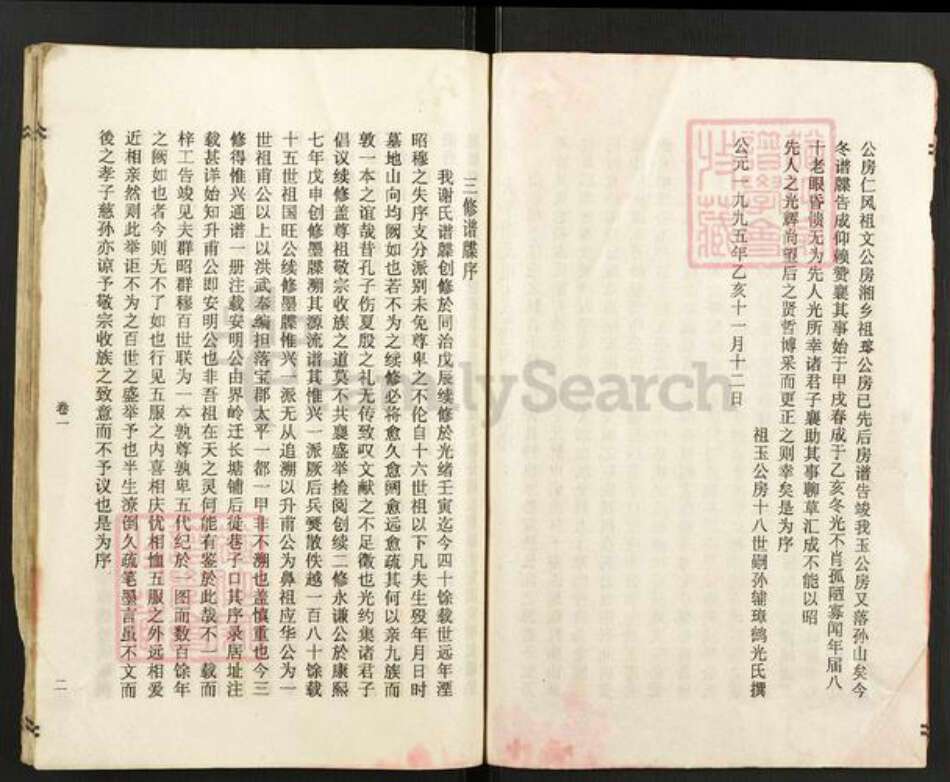 公房仁风祖文公房湘乡祖瑧公房已先后房谱告竣我玉公房又落孙山矣今
冬谱牒告成仰赖赞襄其事始于甲戌春成于乙亥冬光不肖孤陋寡闻年届八
十老眼昏愦无为先人光所幸诸君子襄助其事聊草汇成不能以昭
先人之光辉尚望后之贤哲博采而更正之则幸矣是为序
公元一九九五年乙亥十一月十二日
祖玉公房十八世嗣孙辅璋鹤光氏撰
三修谱牒序
我谢氏谱牒创修於同治戊辰续修於光绪壬寅迄今四十馀载世远年湮
昭穆之失序支分派别未免尊卑之不伦自十六世祖以下凡夫生殁年月日时
墓地山向均阙如也若不为之续修必将愈久愈阙愈远愈疏其何以亲九族而
敦一本之谊哉昔孔子伤夏殷之礼无传致叹文献之不足徵也光约集诸君子
倡议续修盖尊祖敬宗收族之道莫不共襄盛举捡阅创续二修永谦公於康熙
七年戊申创修墨牒溯其源流谱其惟兴一派厥后兵燹散佚越一百八十馀载
十五世祖国旺公续修墨牒惟兴一派无从追溯以升甫公为鼻祖应华公为一
世祖甫公以上以洪武奉编担落宝郡太平一都一甲非不溯也盖慎重也今三
修得惟兴通谱一册注载安明公由界岭迁长塘铺后徒巷子口其序录居址注
载甚详始知升甫公即安明公也非吾祖在天之灵何能有鉴於此哉不一载而
梓工告竣见夫群昭群穆百世联为一本孰尊孰卑五代纪於一图而数百馀年
之阙如也者今则无不了如也行见五服之内喜相庆忧相恤五服之外远相爱
近相亲然则此举讵不为之百世之盛举予也半生潦倒久疏笔墨言虽不文而
後之孝子慈孙亦谅予敬宗收族之致意而不予议也是为序
卷一
二
FamilySearch